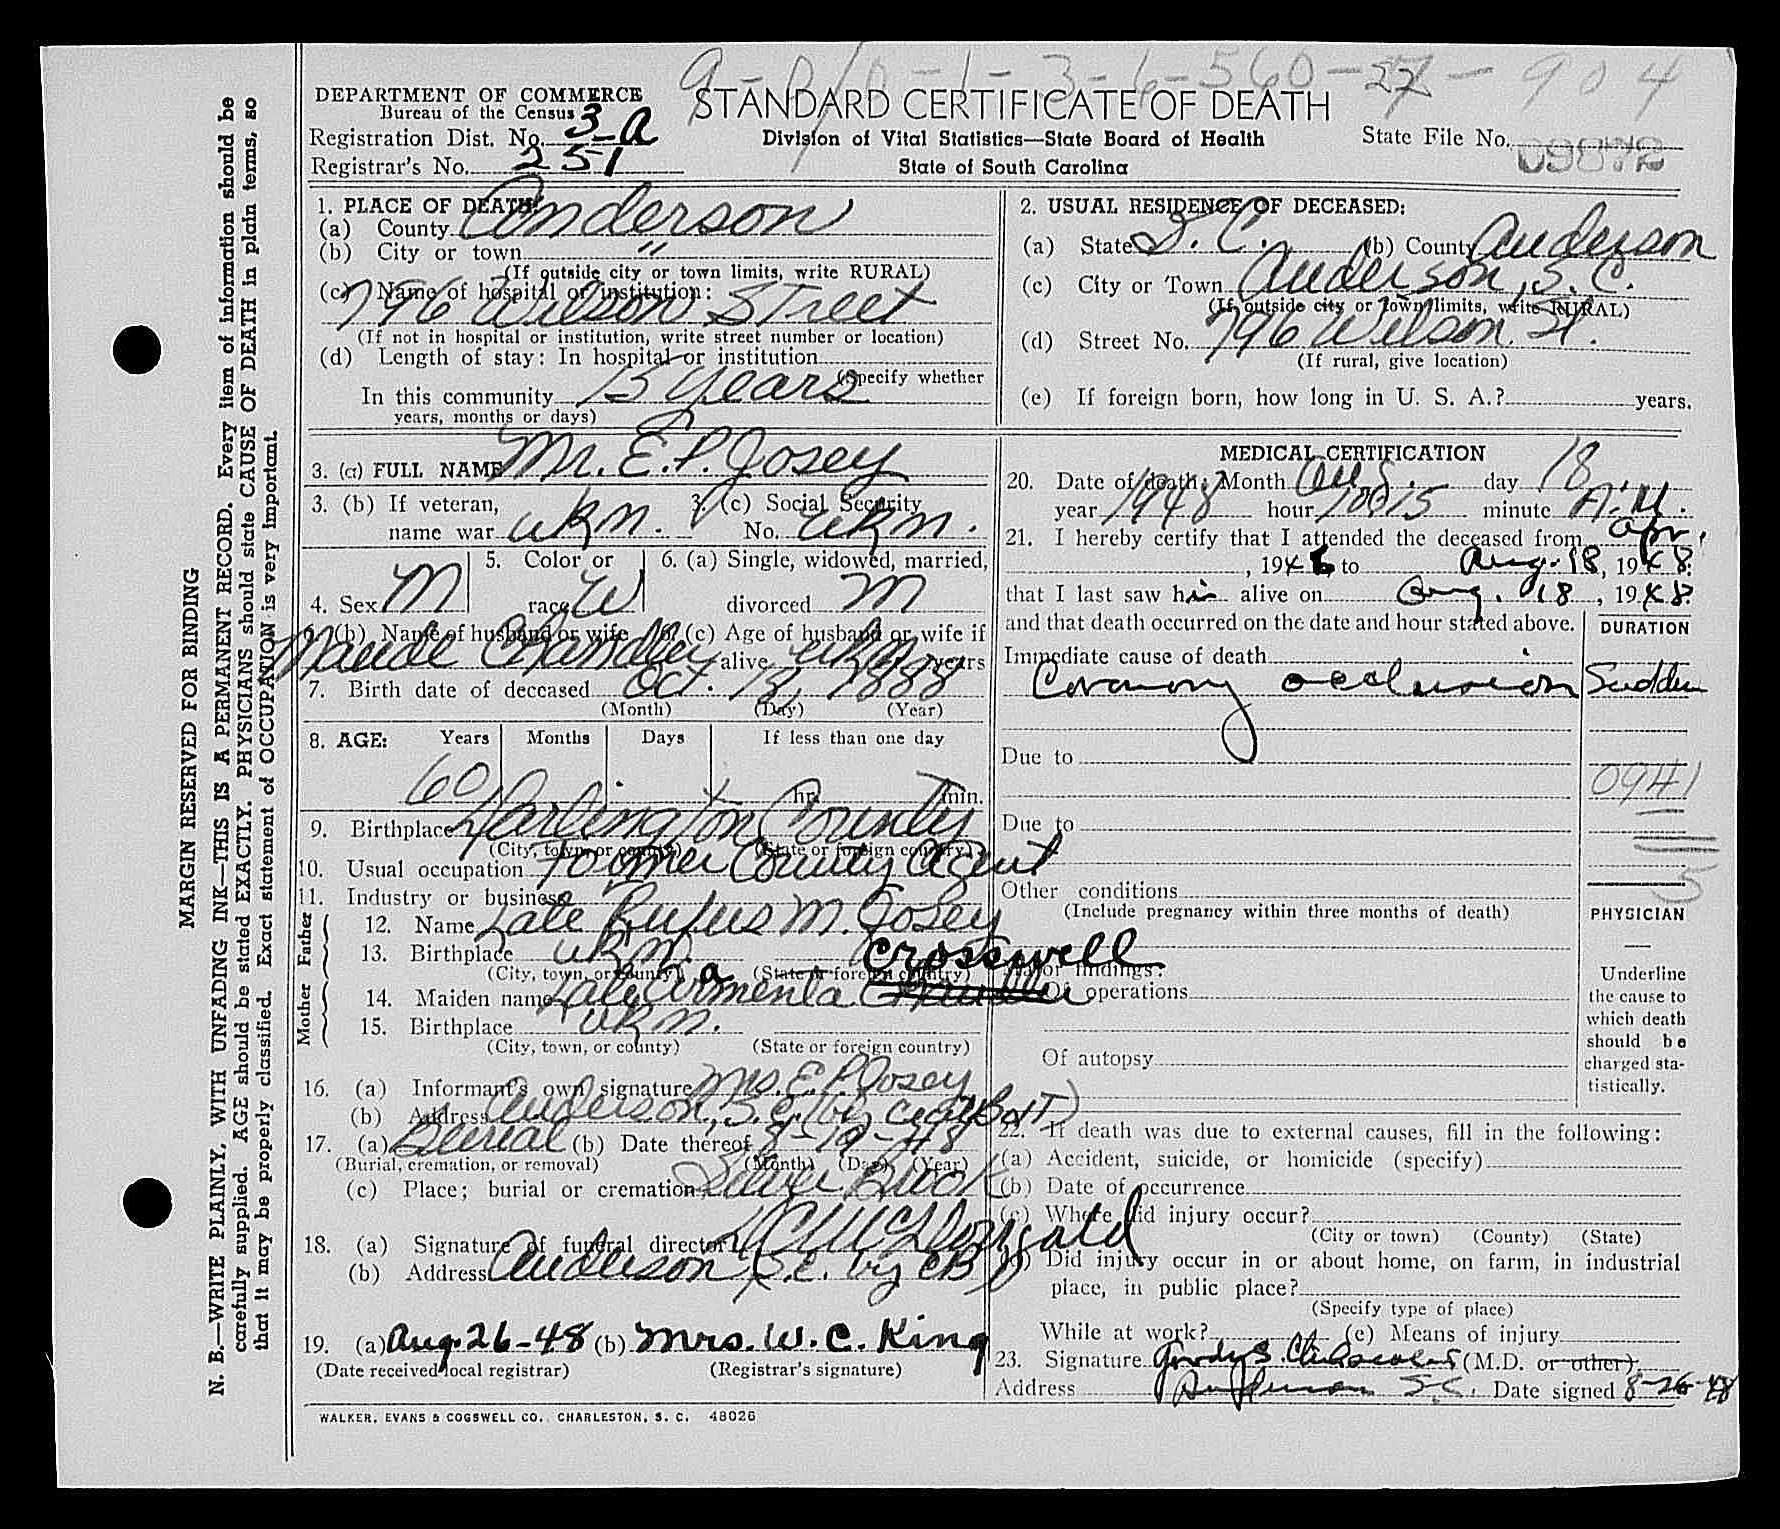 9-0/0-1-3-6-560-27-904
DEPARTMENT OF COMMERCE
Bureau of the Census
STANDARD CERTIFICATE OF DEATH
Registration Dist. No. 3-A
Division of Vital Statistics—State Board of Health
State File No. 09872
Registrar's No. 251
State of South Carolina
1. PLACE OF DEATH:
(a) County Anderson
(b) City or town "
(If outside city or town limits, write RURAL)
(c) Name of hospital or institution:
796 Wilson Street
(If not in hospital or institution, write street number or location)
(d) Length of stay: In hospital or institution
(Specify whether
In this community 15 years
years, months or days)
2. USUAL RESIDENCE OF DECEASED:
(a) State S. C. (b) County Anderson
(c) City or Town Anderson, S. C.
(If outside city or town limits, write RURAL)
(d) Street No. 796 Wilson St.
(If rural, give location)
(e) If foreign born, how long in U. S. A.? years.
3. (a) FULL NAME Mr. E. P. Josey
3. (b) If veteran, 3. (c) Social Security
name war ukn. No. ukn.
5. Color or 6. (a) Single, widowed, married,
4. Sex M race W divorced M
6. (b) Name of husband or wife 6. (c) Age of husband or wife if
Maude Chandler alive ukn years
7. Birth date of deceased Oct. 18, 1888
(Month) (Day) (Year)
8. AGE: Years Months Days If less than one day
60 hr. min.
9. Birthplace Darlington County
(City, town, or county) (State or foreign country)
10. Usual occupation Former County Agent
11. Industry or business
Father
12. Name Late Rufus M. Josey
13. Birthplace ukn.
(City, town, or county) (State or foreign country)
Mother
Crosswell
14. Maiden name Late Armenta
15. Birthplace ukn.
(City, town, or county) (State or foreign country)
16. (a) Informant's own signature Mrs. E. P. Josey
(b) Address Anderson, S. C. (by
17. (a) Burial (b) Date thereof 8-19-48
(Burial, cremation, or removal) (Month) (Day) (Year)
(c) Place; burial or cremation Silver Brook
18. (a) Signature of funeral director McDougald
(b) Address Anderson S. C. by CB
19. (a) Aug. 26-48 (b) Mrs. W. C. King
(Date received local registrar) (Registrar's signature)
WALKER, EVANS & COGSWELL CO., CHARLESTON, S. C. 48026
MEDICAL CERTIFICATION
20. Date of death: Month Aug. day 18
year 1948 hour 10:15 minute A. M.
21. I hereby certify that I attended the deceased from Apr.
, 1946, to Aug. 18, 1948.
that I last saw him alive on Aug. 18, 1948.
and that death occurred on the date and hour stated above.
DURATION
Immediate cause of death
Coronary occlusion Sudden
Due to
0941
Due to
5
Other conditions
(Include pregnancy within three months of death)
PHYSICIAN
—
Underline
the cause to
which death
should be
charged sta-
tistically.
Major findings:
Of operations
Of autopsy
22. If death was due to external causes, fill in the following:
(a) Accident, suicide, or homicide (specify)
(b) Date of occurrence
(c) Where did injury occur?
(City or town) (County) (State)
(d) Did injury occur in or about home, on farm, in industrial
place, in public place?
(Specify type of place)
While at work? (e) Means of injury
23. Signature (M.D. or other)
Address Anderson S.C. Date signed 8-26-48
MARGIN RESERVED FOR BINDING
N. B.—WRITE PLAINLY, WITH UNFADING INK—THIS IS A PERMANENT RECORD. Every item of information should be
carefully supplied. AGE should be stated EXACTLY. PHYSICIANS should state CAUSE OF DEATH in plain terms, so
that it may be properly classified. Exact statement of OCCUPATION is very important.